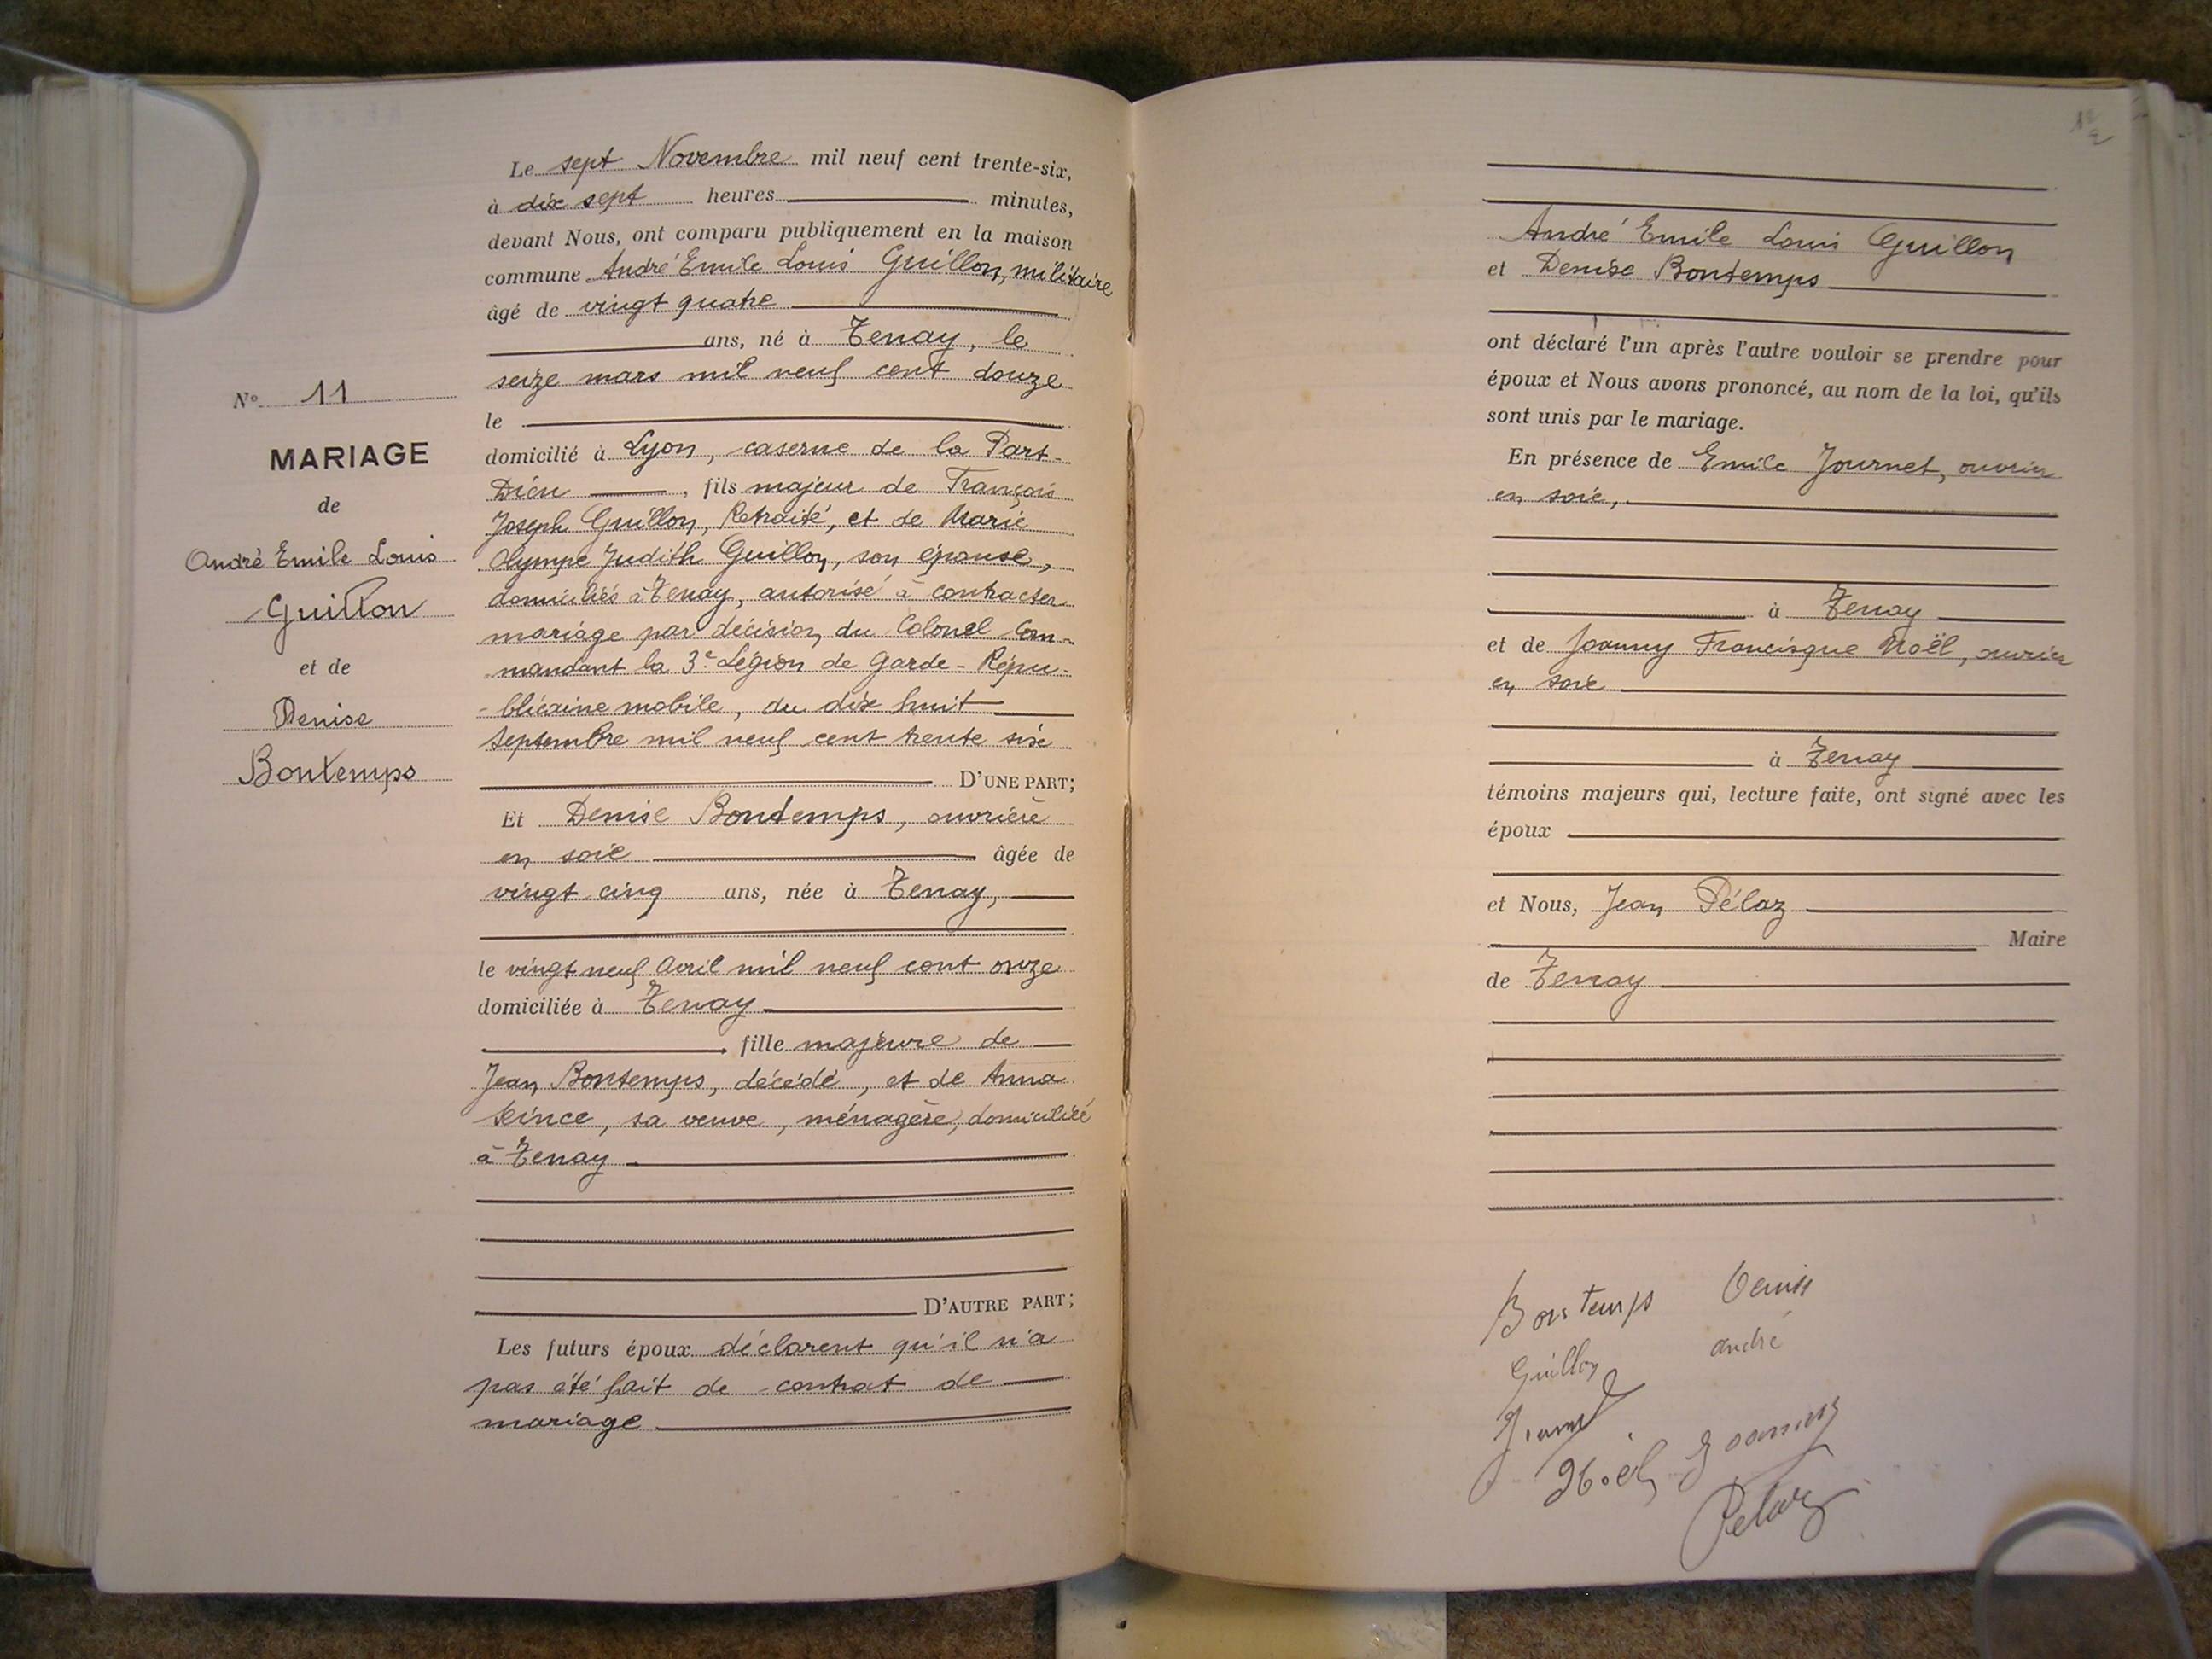 N° 11
MARIAGE
de
André Emile Louis
Guillon
et de
Denise
Bontemps
Le sept Novembre mil neuf cent trente-six,
à dix sept heures minutes,
devant Nous, ont comparu publiquement en la maison
commune André Emile Louis Guillon, militaire
âgé de vingt quatre
ans, né à Tenay, le
seize mars mil neuf cent douze
le
domicilié à Lyon, caserne de la Part-
Dieu, fils majeur de François
Joseph Guillon, Retraité, et de Marie
Olympe Judith Guillon, son épouse,
domiciliés à Tenay, autorisé à contracter
mariage par décision du Colonel Com-
mandant la 3e Légion de Garde-Répu-
-blicaine mobile, du dix huit
Septembre mil neuf cent trente six
D'UNE PART;
Et Denise Bontemps, ouvrière
en soie âgée de
vingt cinq ans, née à Tenay,
le vingt neuf Avril mil neuf cent onze
domiciliée à Tenay
fille majeure de
Jean Bontemps, décédé, et de Anna
Seince, sa veuve, ménagère, domiciliée
à Tenay
D'AUTRE PART;
Les futurs époux déclarent qu'il n'a
pas été fait de contrat de
mariage
André Emile Louis Guillon
et Denise Bontemps
ont déclaré l'un après l'autre vouloir se prendre pour
époux et Nous avons prononcé, au nom de la loi, qu'ils
sont unis par le mariage.
En présence de Emile Journet, ouvrier
en soie,
à Tenay
et de Joanny Francisque Noël, ouvrier
en soie
à Tenay
témoins majeurs qui, lecture faite, ont signé avec les
époux
et Nous, Jean Pélaz
Maire
de Tenay
Bontemps Denise
Guillon André
Journet
Noël Joanny
Pelaz